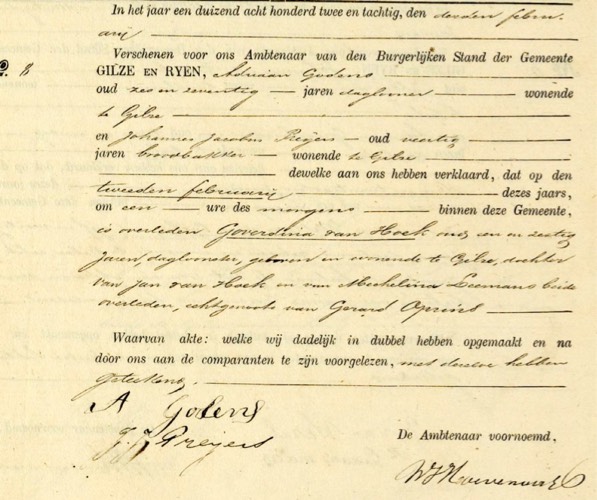 In het jaar een duizend acht honderd twee en tachtig, den derden febru-
arij
Verschenen voor ons Ambtenaar van den Burgerlijken Stand der Gemeente
8 GILZE EN RYEN, Adriaan Godens
oud zes en zeventig jaren daglooner wonende
te Gilze
en Johannes Jacobus Reijers oud veertig
jaren broodbakker wonende te Gilze
dewelke aan ons hebben verklaard, dat op den
tweeden februarij dezes jaars,
om een ure des morgens binnen deze Gemeente,
is overleden Goverdina van Hoek oud een en zestig
jaren, daglooner, geboren en wonende te Gilze, dochter
van Jan van Hoek en van Mechelina Leemans beide
overleden, echtgenoote van Gerard Oprins
Waarvan akte: welke wij dadelijk in dubbel hebben opgemaakt en na
door ons aan de comparanten te zijn voorgelezen, met dezelve hebben
geteekend.
A Godens
J. J. Reijers
De Ambtenaar voornoemd,